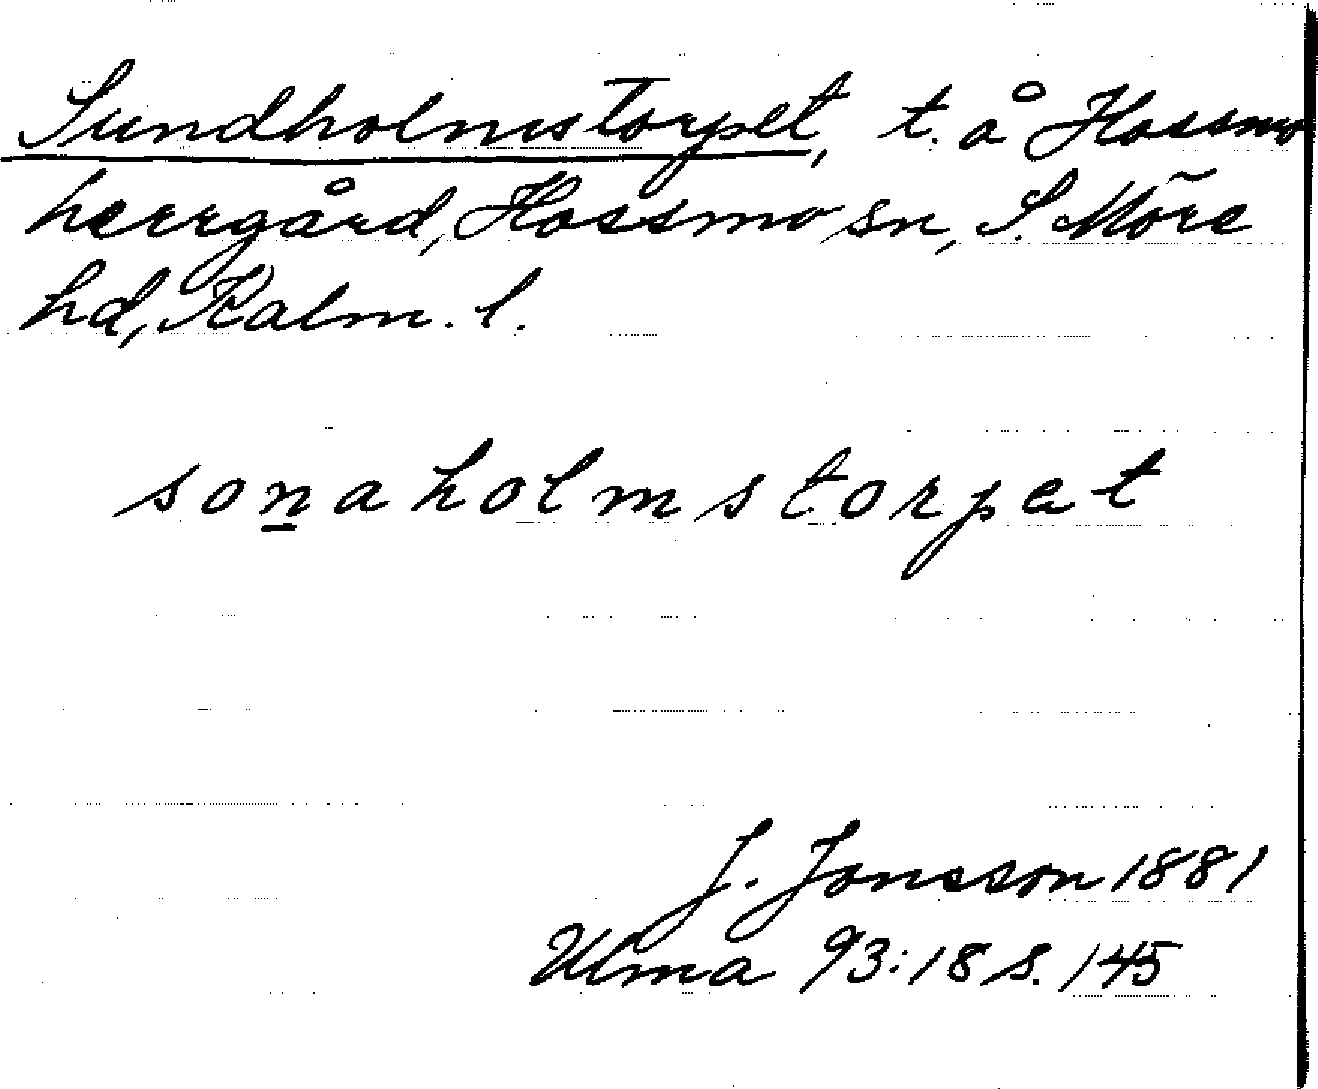 Sundholmstorpet, t. å Hossmo
herrgård, Hossmo sn, S. Möre
hd, Kalm. l.
sonaholmstorpet
J. Jonsson 1881
Ulma 93:18 s. 145